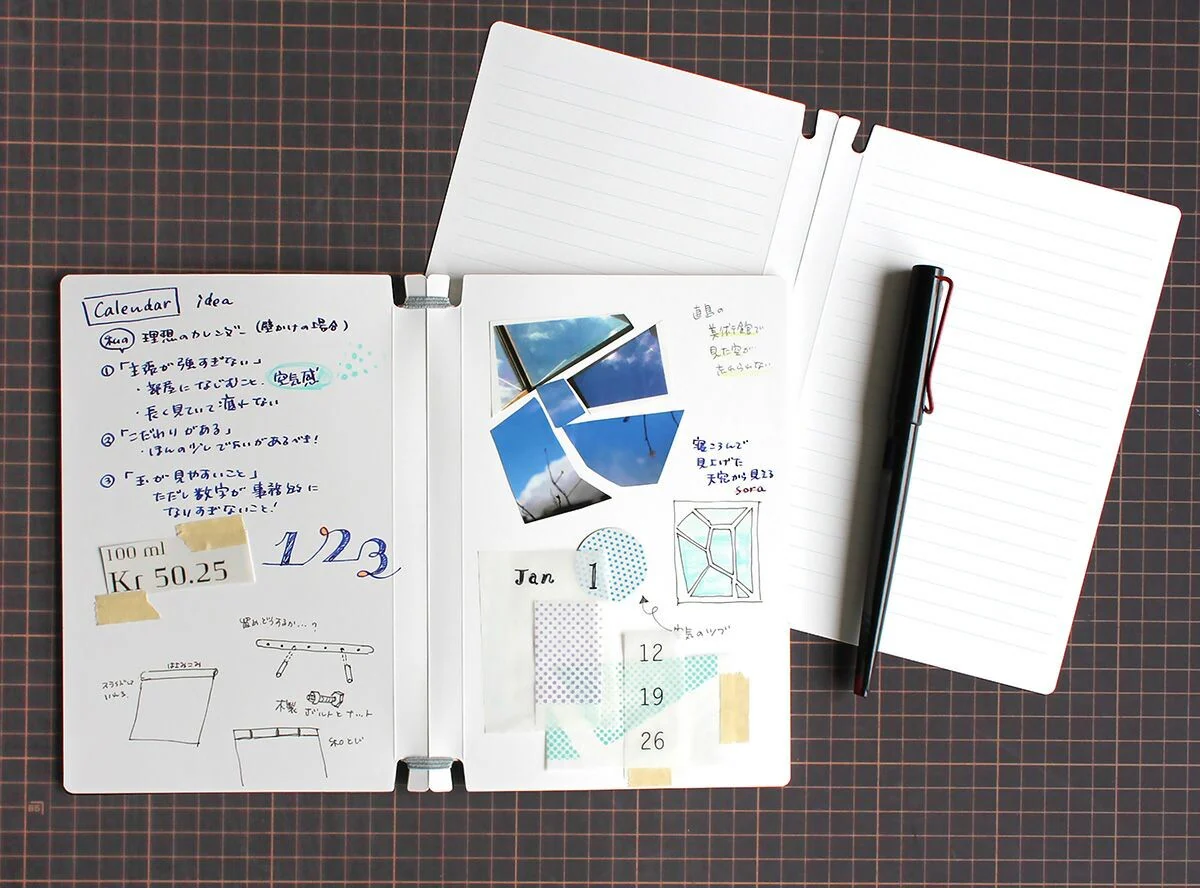 Calendar idea
私の 理想のカレンダー(壁かけの場合)
①「主張が強すぎない」
・部屋になじむこと。空気感
・長く見ていて疲れない
②「こだわりがある」
・ほんの少しでいいがあるべき!
③「玉が見やすいこと」
ただし数字が事務的に
なりすぎないこと!
100 ml
Kr 50.25
123
留めどうするか…?
はさみこみ
スライドして
いれる
木製 ボルトとナット
和とじ
直島の
美術館で
見た空が
忘れられない
寝ころんで
見上げた
天窓から見える
sora
Jan 1
空気のツブ
12
19
26
B5